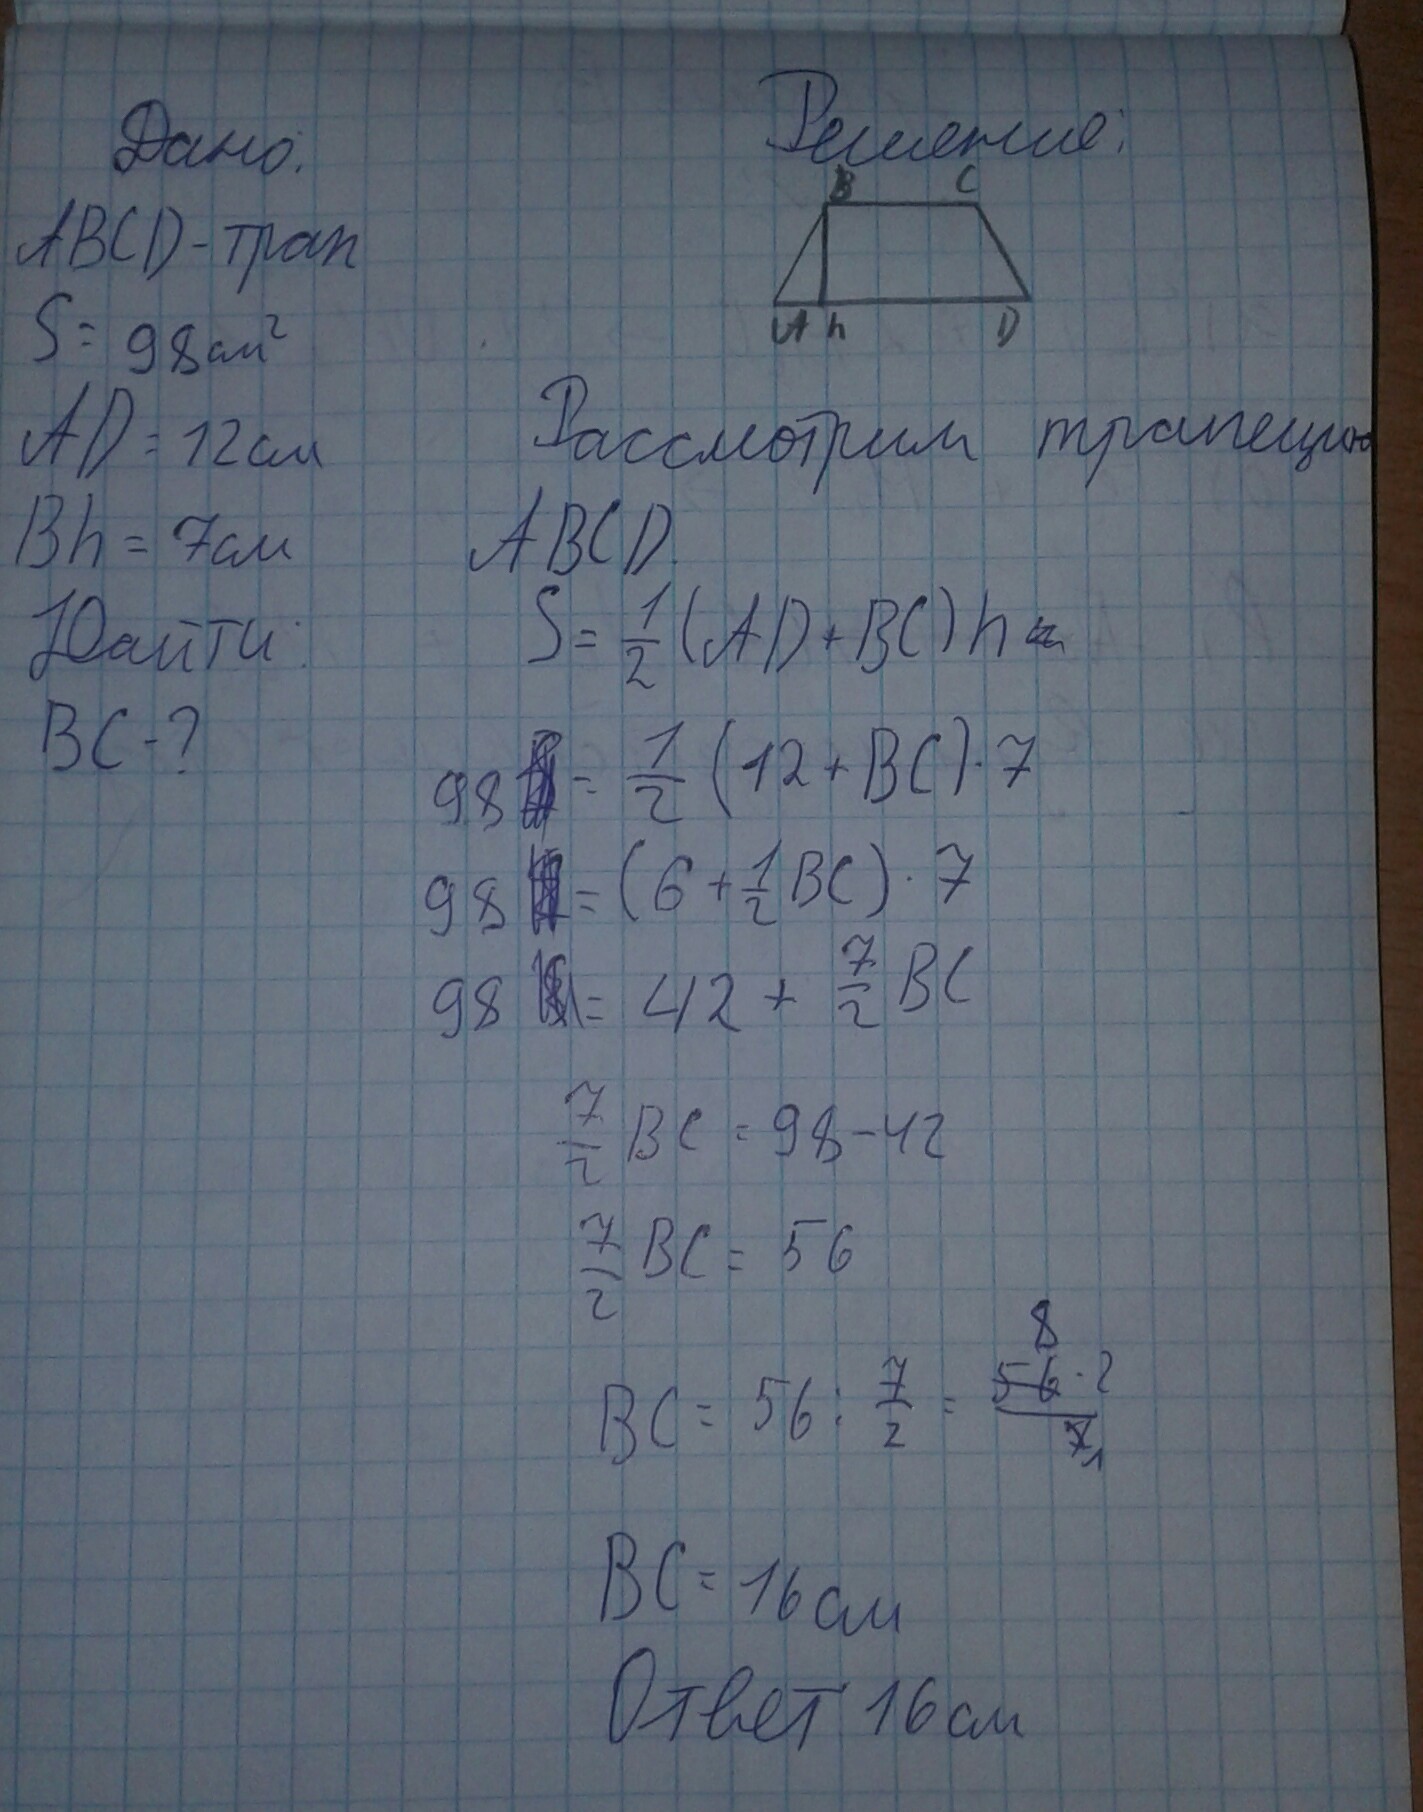 Дано:
ABCD-трап
S = 98 см²
AD = 12 см
Bh = 7 см
Найти:
BC - ?
Решение:
B C
A h D
Рассмотрим трапецию
ABCD.
S = 1/2 (AD + BC) h
98 = 1/2 (12 + BC) · 7
98 = (6 + 1/2 BC) · 7
98 = 42 + 7/2 BC
7/2 BC = 98 - 42
7/2 BC = 56
8
BC = 56 : 7/2 = 56 · 2 / 7 1
BC = 16 см
Ответ 16 см